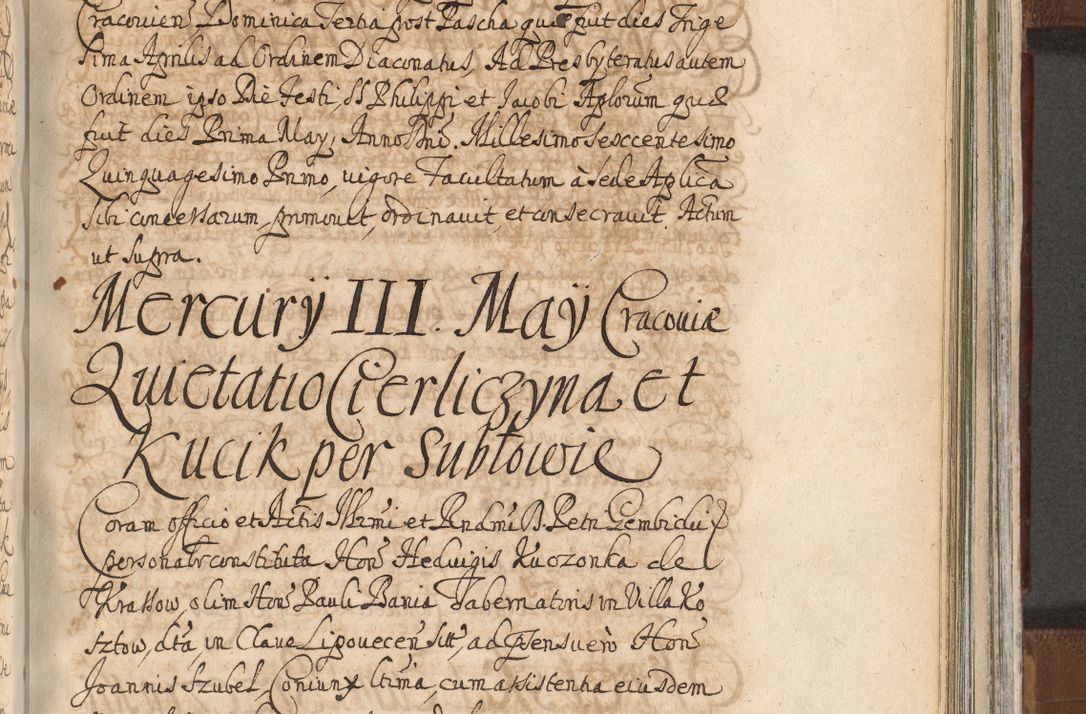 Cracovien Dominica Tertia post Pascha quæ fuit dies Trige
sima Aprilis ad Ordinem Diaconatus, Ad Presbyteratus autem
Ordinem ipso Die Festi, SS Philippi et Jacobi Aplorum quæ
fuit dies Prima May, Anno Dni. Millesimo Sexccentesimo
Quinquagesimo Primo, vigore Facultatum à Sede Aplica
sibi concessarum promovit, ordinavit, et consecravit. Actum
ut supra.
Mercurÿ III. Maÿ Cracoviæ
Quietatio Cierliczyna et
Kucik per Subtowie
Coram officio et Actis Illrmi et Rndmi D. Petri Gembicki
personalr constituta Hon Hedvigis Kuczonka de
Krassow, olim Hon Pauli Bania Tabernatoris in Villa Ko
sztow, dta, in Clave Lipovecen sit, ad psens vero Hon
Joannis Szubel Coniunx ltima, cum assistentia eiusdem